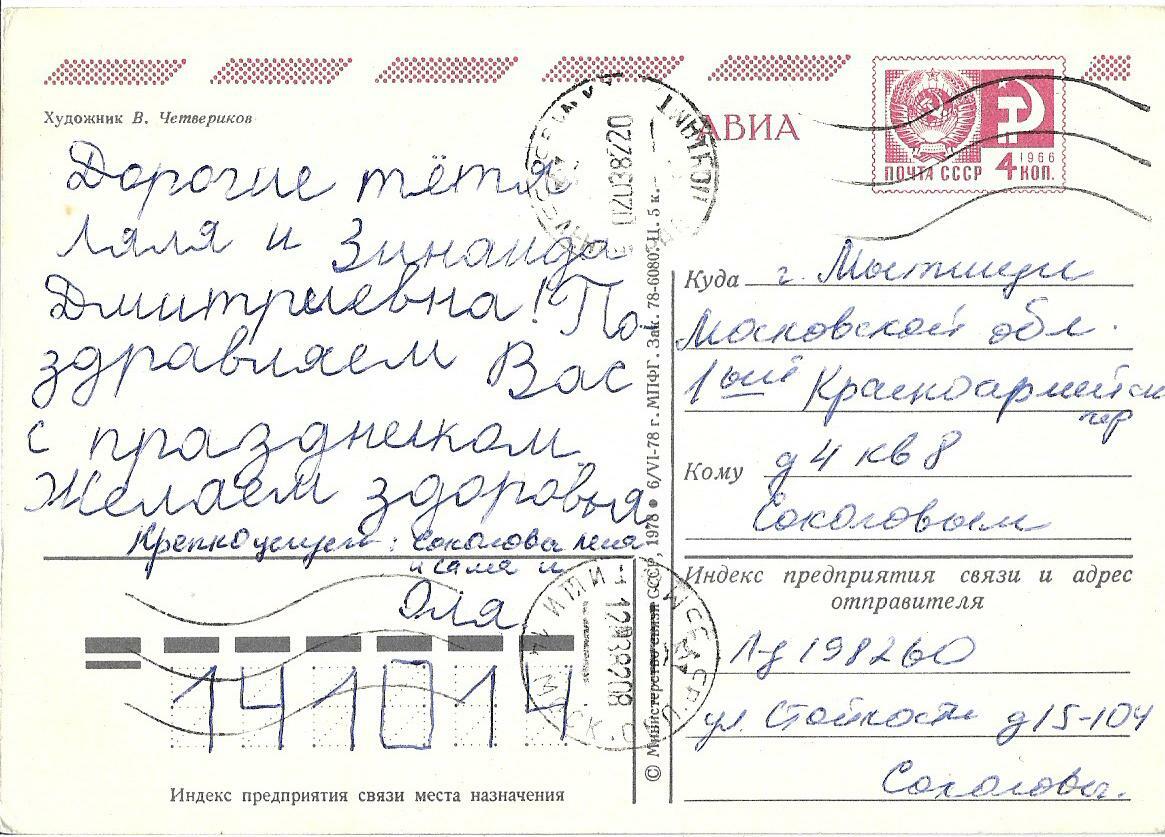 Художник В. Четвериков
АВИА
1966
ПОЧТА СССР 4 КОП.
Дорогие тётя
Ляля и Зинаида
Дмитриевна! По-
здравляем Вас
с праздником
Желаем здоровья
Крепко целуем: Соколова Лена
и Саша и
Оля.
141014
Индекс предприятия связи места назначения
© Министерство связи СССР, 1978 • 6/VI-78 г. МПФГ. Зак. 78-6080. Ц. 5 к.
Куда г. Мытищи
Московской обл.
1ый Красноармейский
пер
Кому д 4 кв 8
Соколовым
Индекс предприятия связи и адрес
отправителя
Л-д 198260
ул. Стойкости д 15-104
Соколовы.